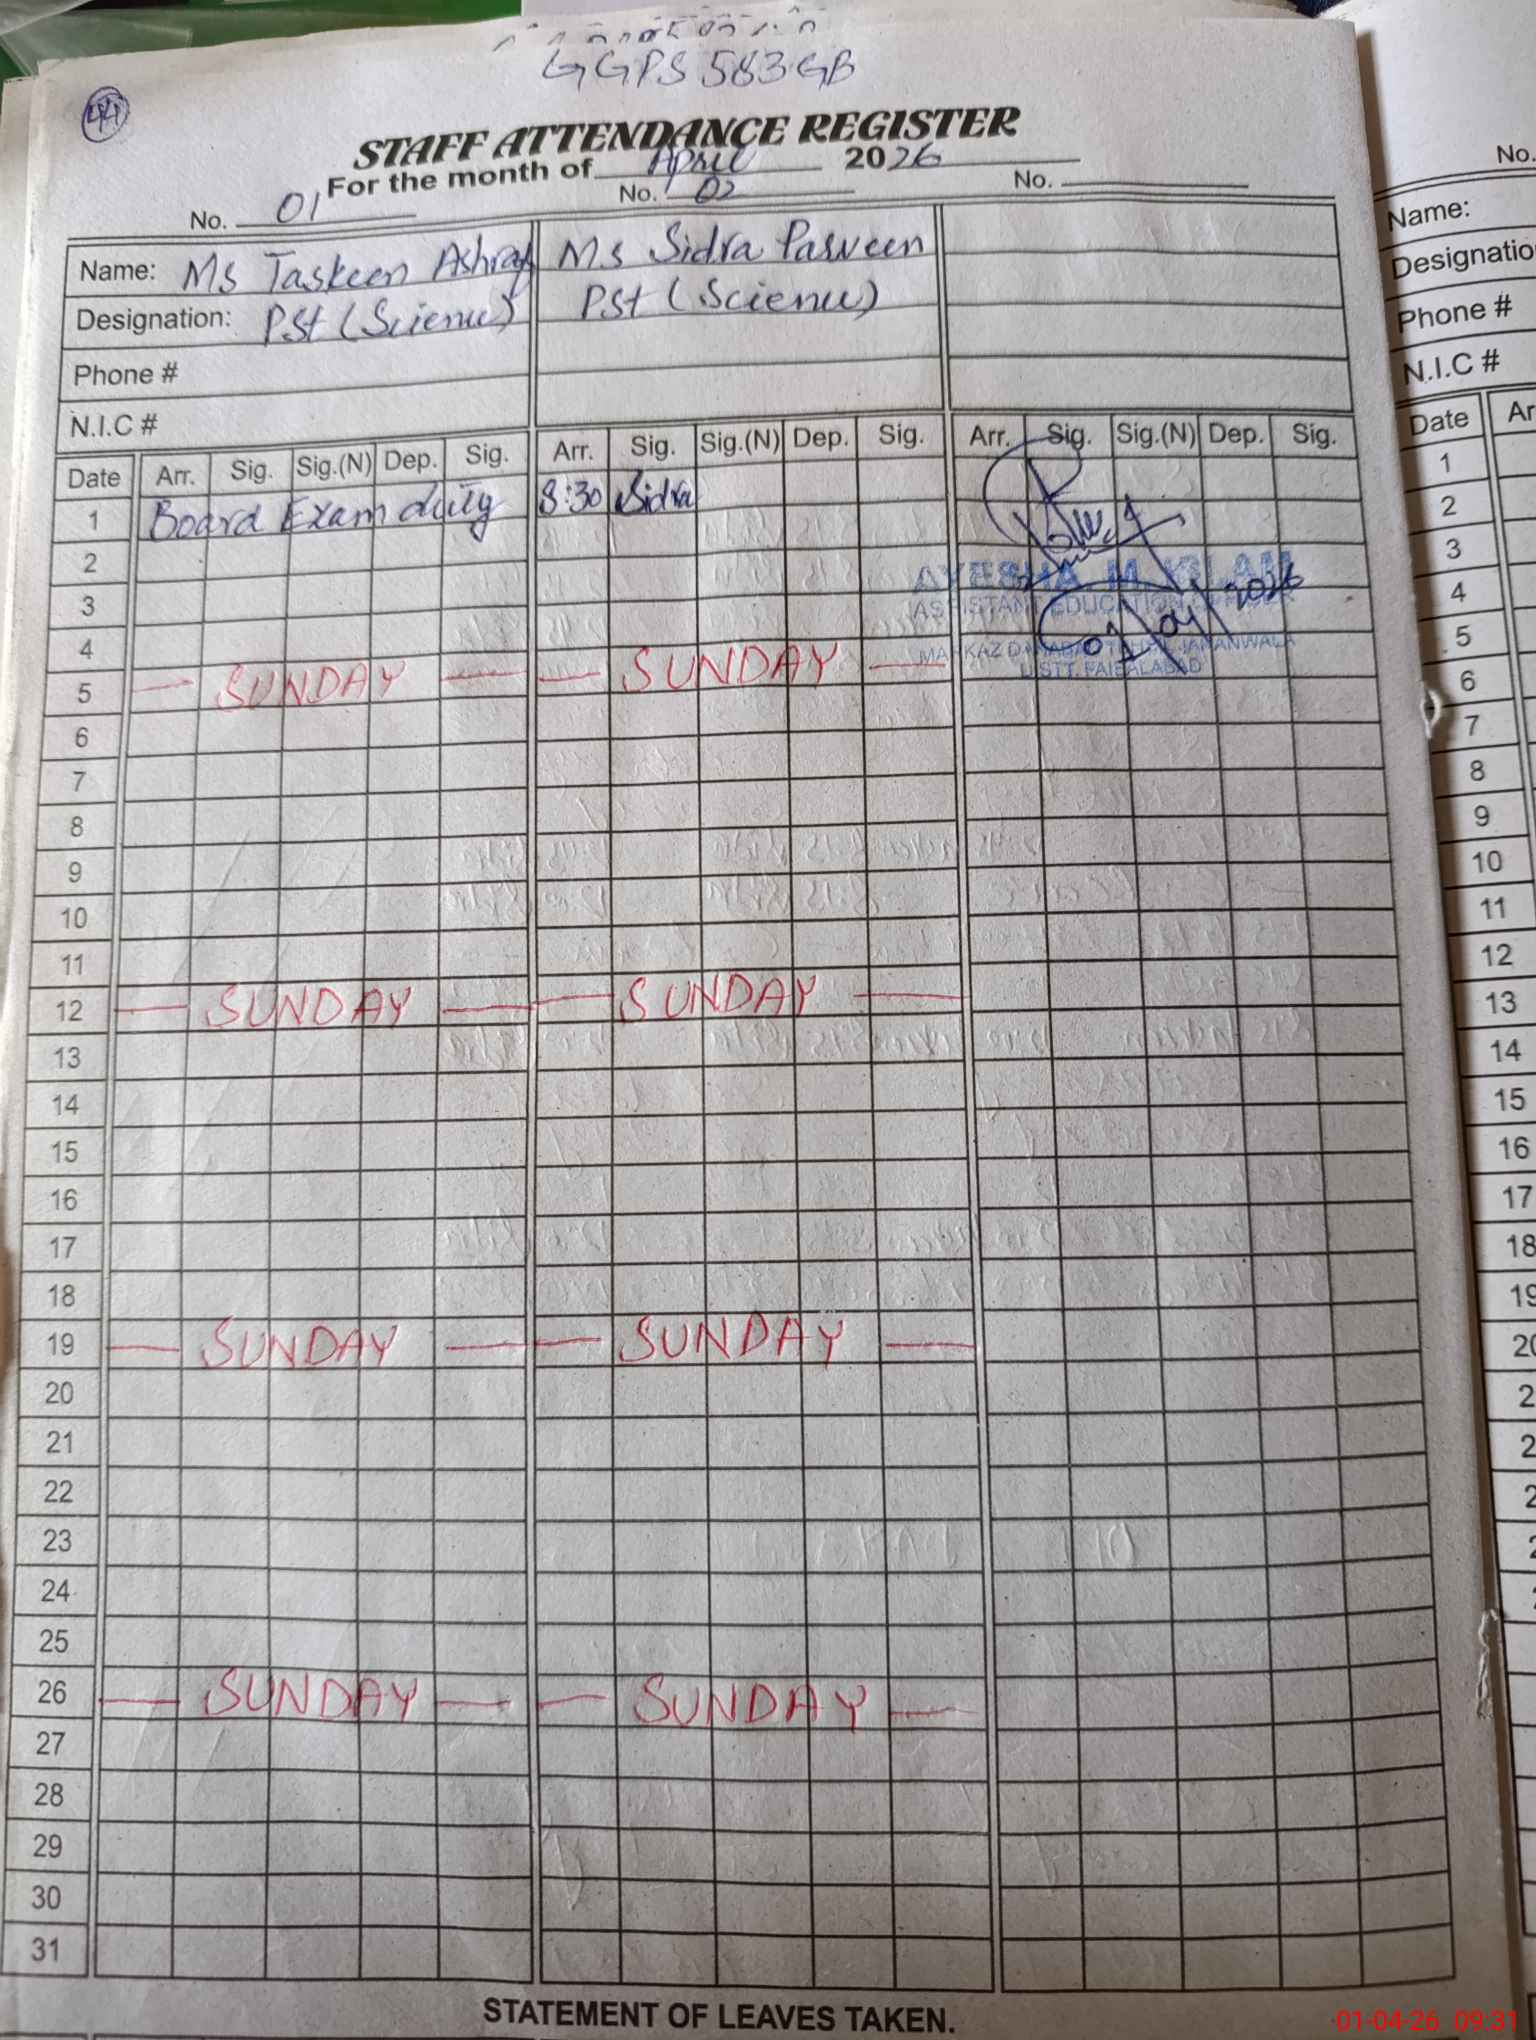 GGPS 583 GB
44
STAFF ATTENDANCE REGISTER
For the month of April 2026
No. 01 No. 02 No.
Name: Ms Taskeen Ashraf Ms Sidra Parveen
Designation: PSt (Science) PSt (Science)
Phone #
N.I.C #
Date Arr. Sig. Sig.(N) Dep. Sig. Arr. Sig. Sig.(N) Dep. Sig. Arr. Sig. Sig.(N) Dep. Sig.
1 Board Exam duty 8:30 Sidra
2
AYESHA M ISLAM
3
ASSISTANT EDUCATION OFFICER
01/04/2026
4
5 — SUNDAY — — SUNDAY —
DISTT. FAISALABAD
6
7
8
9
10
11
12 — SUNDAY — — SUNDAY —
13
14
15
16
17
18
19 — SUNDAY — — SUNDAY —
20
21
22
23
24
25
26 — SUNDAY — — SUNDAY —
27
28
29
30
31
STATEMENT OF LEAVES TAKEN.
No.
Name:
Phone #
N.I.C #
Date
1
2
3
4
5
6
7
8
9
10
11
12
13
14
15
16
17
18
01-04-26 09:31